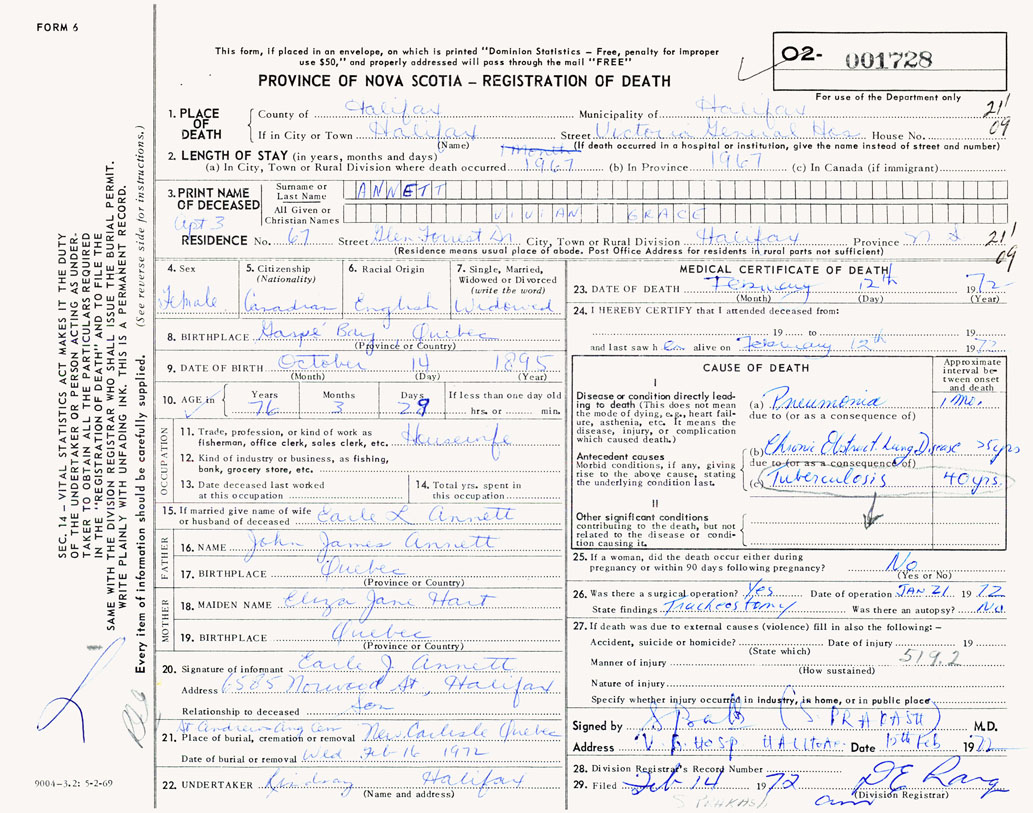 FORM 6
This form, if placed in an envelope, on which is printed "Dominion Statistics – Free, penalty for improper
use $50," and properly addressed will pass through the mail "FREE"
PROVINCE OF NOVA SCOTIA – REGISTRATION OF DEATH
O2- 001728
For use of the Department only
1. PLACE OF DEATH
County of Halifax Municipality of Halifax 21'
If in City or Town Halifax Street Victoria General Hos House No. 09
(Name) (If death occurred in a hospital or institution, give the name instead of street and number)
2. LENGTH OF STAY (in years, months and days) 1 Month
(a) In City, Town or Rural Division where death occurred 1967 (b) In Province 1967 (c) In Canada (if immigrant)
3. PRINT NAME OF DECEASED
Surname or Last Name ANNETT
All Given or Christian Names VIVIAN GRACE
Apt 3
RESIDENCE No. 67 Street Glen Forrest Dr. City, Town or Rural Division Halifax Province N S 21'
(Residence means usual place of abode. Post Office Address for residents in rural parts not sufficient) 09
4. Sex Female
5. Citizenship (Nationality) Canadian
6. Racial Origin English
7. Single, Married, Widowed or Divorced (write the word) Widowed
8. BIRTHPLACE Gaspé Bay Quebec
(Province or Country)
9. DATE OF BIRTH October 14 1895
(Month) (Day) (Year)
10. AGE in Years 76 Months 3 Days 29 If less than one day old hrs. or min.
OCCUPATION
11. Trade, profession or kind of work as Housewife
fisherman, office clerk, sales clerk, etc.
12. Kind of industry or business, as fishing,
bank, grocery store, etc.
13. Date deceased last worked at this occupation
14. Total yrs. spent in this occupation
15. If married give name of wife or husband of deceased Earle L Annett
FATHER
16. NAME John James Annett
17. BIRTHPLACE Quebec
(Province or Country)
MOTHER
18. MAIDEN NAME Eliza Jane Hart
19. BIRTHPLACE Quebec
(Province or Country)
20. Signature of informant Earle J. Annett
Address 6585 Norwood St, Halifax
Relationship to deceased Son
St Andrews Ang Cem
21. Place of burial, cremation or removal New Carlisle Quebec
Date of burial or removal Wed Feb 16 1972
22. UNDERTAKER Lindsay Halifax
(Name and address)
MEDICAL CERTIFICATE OF DEATH
23. DATE OF DEATH February 12th 1972
(Month) (Day) (Year)
24. I HEREBY CERTIFY that I attended deceased from:
19 to 19
and last saw h er alive on February 12th 1972
CAUSE OF DEATH
Approximate interval between onset and death
I
Disease or condition directly leading to death (This does not mean the mode of dying, e.g., heart failure, asthenia, etc. It means the disease, injury, or complication which caused death.)
(a) Pneumonia 1 mo.
due to (or as a consequence of)
Antecedent causes
Morbid conditions, if any, giving rise to the above cause, stating the underlying condition last.
(b) Chronic Obstruct. Lung Disease >5yrs
due to (or as a consequence of)
(c) Tuberculosis 40 yrs.
II
Other significant conditions contributing to the death, but not related to the disease or condition causing it.
25. If a woman, did the death occur either during
pregnancy or within 90 days following pregnancy? No
(Yes or No)
26. Was there a surgical operation? Yes Date of operation JAN 21 1972
State findings Tracheostomy Was there an autopsy? No
27. If death was due to external causes (violence) fill in also the following: –
Accident, suicide or homicide? Date of injury 19
(State which) 519.2
Manner of injury
(How sustained)
Nature of injury
Specify whether injury occurred in industry, in home, or in public place
Signed by (S. PRAKASH) M.D.
Address V. G. HOSP HALIFAX Date 12th Feb 1972
28. Division Registrar's Record Number
29. Filed Feb 14 1972
S PRAKASH (Division Registrar)
SEC. 14 – VITAL STATISTICS ACT MAKES IT THE DUTY
OF THE UNDERTAKER OR PERSON ACTING AS UNDERTAKER TO OBTAIN ALL THE PARTICULARS REQUIRED
IN THE "REGISTRATION OF DEATH" AND TO FILE THE
SAME WITH THE DIVISION REGISTRAR WHO SHALL ISSUE THE BURIAL PERMIT.
WRITE PLAINLY WITH UNFADING INK. THIS IS A PERMANENT RECORD.
Every item of information should be carefully supplied. (See reverse side for instructions.)
9004-3.2: 5-2-69